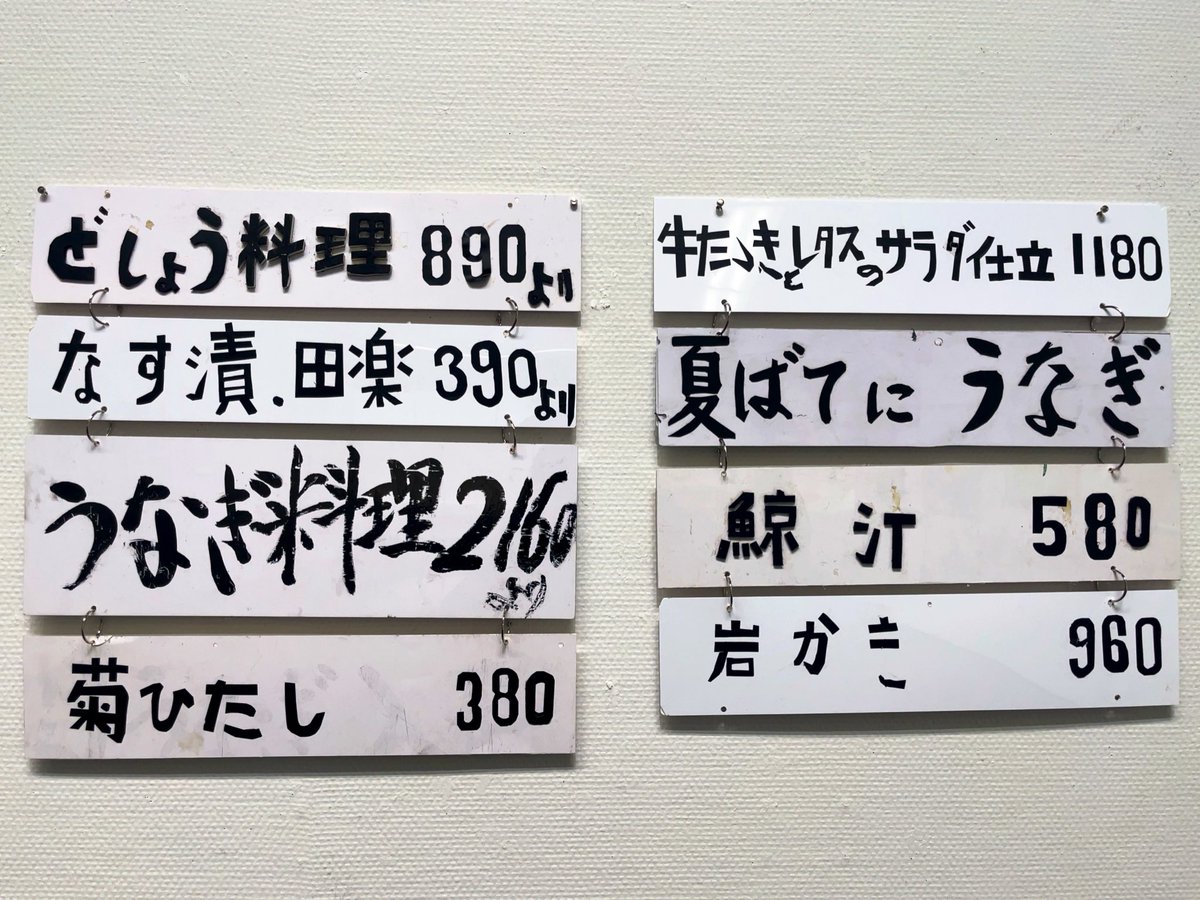 どじょう料理 890より
なす漬.田楽 390より
うなぎ料理 2160より
菊ひたし 380
牛たたきとレタスのサラダ仕立 1180
夏ばてに うなぎ
鯨汁 580
岩かき 960